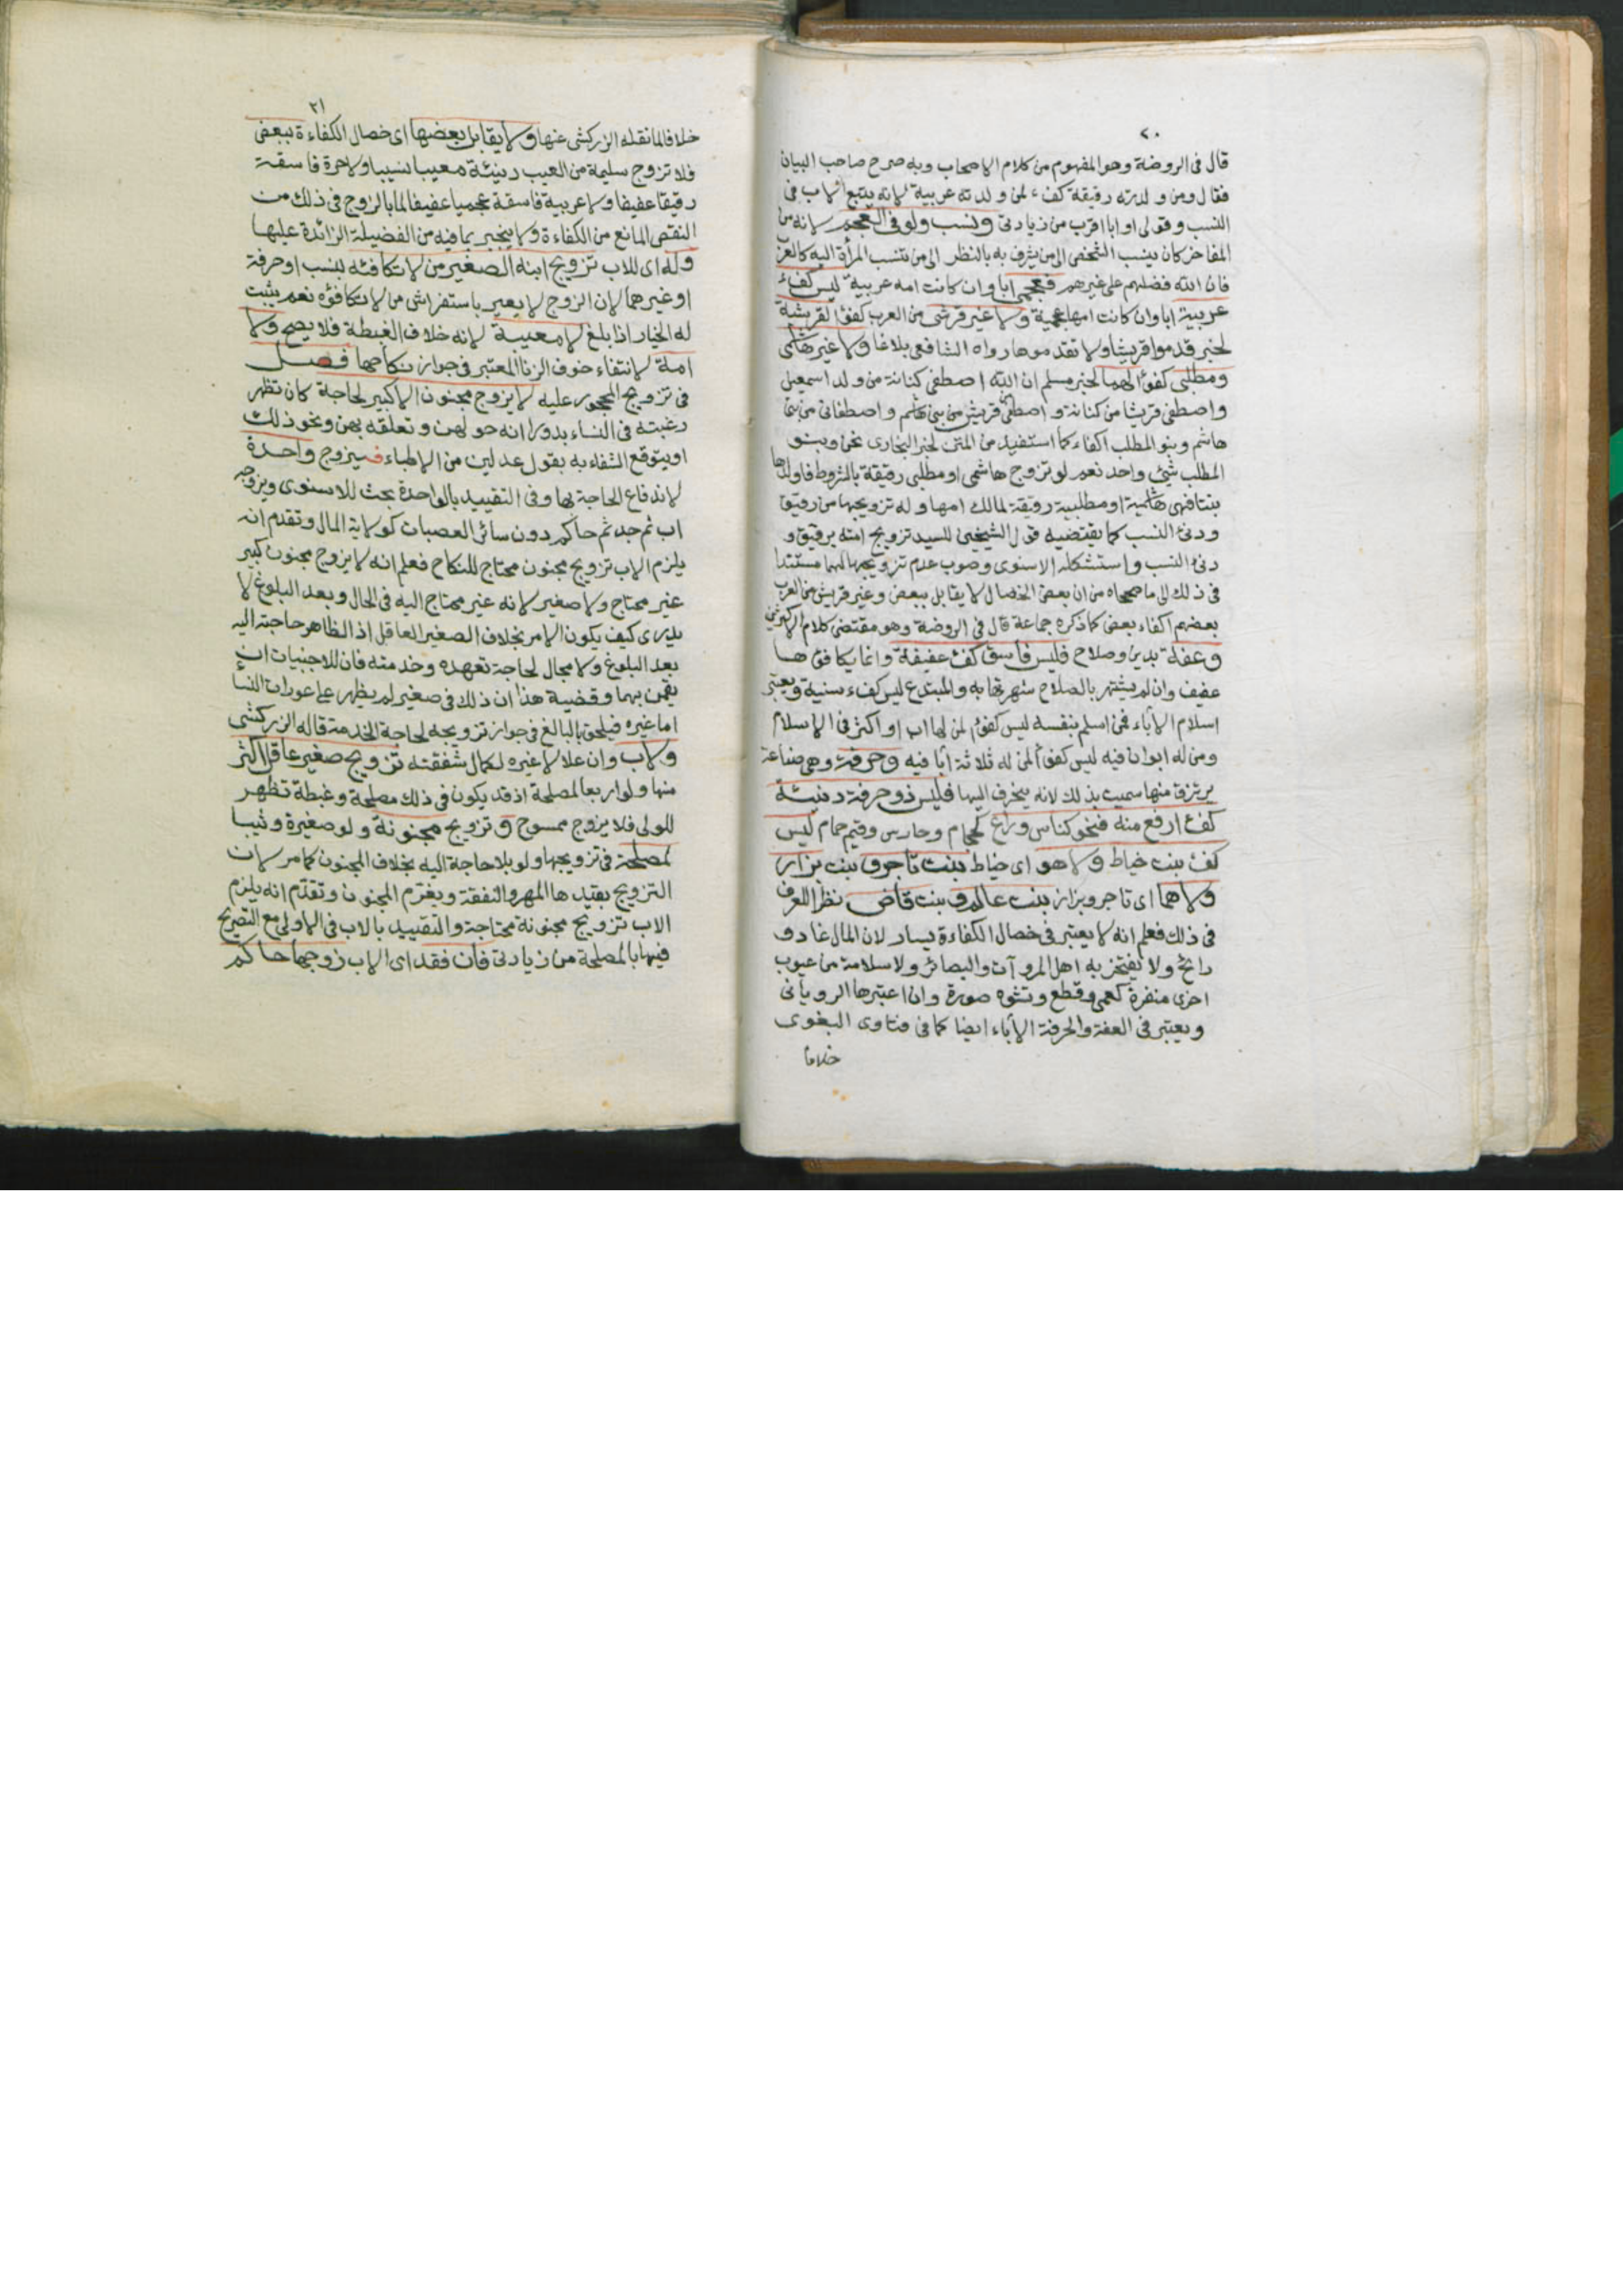 ٢٠
قال فى الروضة وهو المفهوم من كلام الاصحاب وبه صرح صاحب البيان
فقال ومن ولدته رقيقة كفء لمن ولدته عربية لانه يتبع الاب فى
النسب وقولى او ابا اقرب من زيادتى ونسب ولو فى العجم لانه من
المفاخر كان ينسب الشخص الى من يشرف به بالنظر الى من تنسب المرأة اليه كالعرب
فان الله فضلهم على غيرهم فعجمى ابا وان كانت امه عربية ليس كفء
عربية ابا وان كانت امها عجمية ولا غير قرشى من العرب كفؤا لقرشية
لخبر قدموا قريشا ولا تقدموها رواه الشافعى بلاغا ولا غير هاشمى
ومطلبى كفؤا لهما لخبر مسلم ان الله اصطفى كنانة من ولد اسمعيل
واصطفى قريشا من كنانة واصطفى من قريش بنى هاشم واصطفانى من بنى
هاشم وبنو المطلب اكفاء كما استفيد من المتن لخبر البخارى نحن وبنو
المطلب شئ واحد نعم لو تزوج هاشمى او مطلبى رقيقة بالشروط فاولدها
بنتا فهى هاشمية او مطلبية رقيقة لمالك امها وله تزويجها من رقيق
ودنئ النسب كما يقتضيه قول الشيخين للسيد تزويج امته برقيق و
دنئ النسب واستشكله الاسنوى وصوب عدم تزويجها لهما مستندا
فى ذلك الى ما صححاه من ان بعض الخصال لا يقابل ببعض وغير قريش من العرب
بعضهم اكفاء بعض كما ذكره جماعة قال فى الروضة وهو مقتضى كلام الاكثرين
وعفة بدين وصلاح فليس فاسق كفء عفيفة وانما يكافئها
عفيف وان لم يشتهر بالصلاح شهرتها به والمبتدع ليس كفء سنية ويعتبر
اسلام الآباء فمن اسلم بنفسه ليس كفؤا لمن لها اب او اكثر فى الاسلام
ومن له ابوان فيه ليس كفؤا لمن له ثلاثة آبا فيه وحرفة وهى صناعة
يرتزق منها سميت بذلك لانه ينحرف اليها فليس ذو حرفة دنيئة
كفء ارفع منه فنحو كناس وراع كحجام وحارس وقيم حمام ليس
كفء بنت خياط ولا هو اى خياط بنت تاجر وبنت بزاز
ولا هما اى تاجر وبزاز بنت عالم وبنت قاض نظرا للعرف
فى ذلك فعلم انه لا يعتبر فى خصال الكفاءة يسار لان المال غاد و
رائح ولا يفتخر به اهل المروآت والبصائر ولا سلامة من عيوب
اخرى منفرة كعمى وقطع وتشوه صورة وان اعتبرها الرويانى
ويعتبر فى العفة والحرفة الآباء ايضا كما فى فتاوى البغوى
خلافا
٢١
خلافا لما نقله الزركشى عنها ولا يقابل بعضها اى خصال الكفاءة ببعض
فلا تزوج سليمة من العيب دنيئة معيبا نسيبا ولا حرة فاسقة
رقيقا عفيفا ولا عربية فاسقة عجميا عفيفا لما بالزوج فى ذلك من
النقص المانع من الكفاءة ولا ينجبر بما فيه من الفضيلة الزائدة عليها
وله اى للاب تزويج ابنه الصغير من لا تكافئه لنسب او حرفة
او غيرهما لان الزوج لا يعير باستفراش من لا تكافؤه نعم يثبت
له الخيار اذا بلغ لا معيبة لانه خلاف الغبطة فلا يصح ولا
امة لانتفاء خوف الزنا المعتبر فى جواز نكاحها فصل
فى تزويج المحجور عليه لا يزوج مجنون الا كبير لحاجة كان تظهر
رغبته فى النساء بدورانه حولهن وتعلقه بهن ونحو ذلك
او يتوقع الشفاء به بقول عدلين من الاطباء فيزوج واحدة
لاندفاع الحاجة بها وفى التقييد بالواحدة بحث للاسنوى ويزوجه
اب ثم جد ثم حاكم دون سائر العصبات كولاية المال وتقدم انه
يلزم الاب تزويج مجنون محتاج للنكاح فعلم انه لا يزوج مجنون كبير
غير محتاج ولا صغير لانه غير محتاج اليه فى الحال وبعد البلوغ لا
يدرى كيف يكون الامر بخلاف الصغير العاقل اذ الظاهر حاجته اليه
بعد البلوغ ولا مجال لحاجة تعهده وخدمته فان للاجنبيات ان
يقمن بهما وقضية هذا ان ذلك فى صغير لم يظهر على عورات النسا
اما غيره فيلحق بالبالغ فى جواز تزويجه لحاجة الخدمة قاله الزركشى
ولاب وان علا لا غيره لكمال شفقته تزويج صغير عاقل اكثر
منها ولو اربعا لمصلحة اذ قد يكون فى ذلك مصلحة وغبطة تظهر
للولى فلا يزوج ممسوح وتزويج مجنونة ولو صغيرة وثيبا
لمصلحة فى تزويجها ولو بلا حاجة اليه بخلاف المجنون كما مر لان
التزويج يفيدها المهر والنفقة ويغرم المجنون وتقدم انه يلزم
الاب تزويج مجنونة محتاجة والتقييد بالاب فى الاولى مع التصريح
فيها بالمصلحة من زيادتى فان فقد اى الاب زوجها حاكم